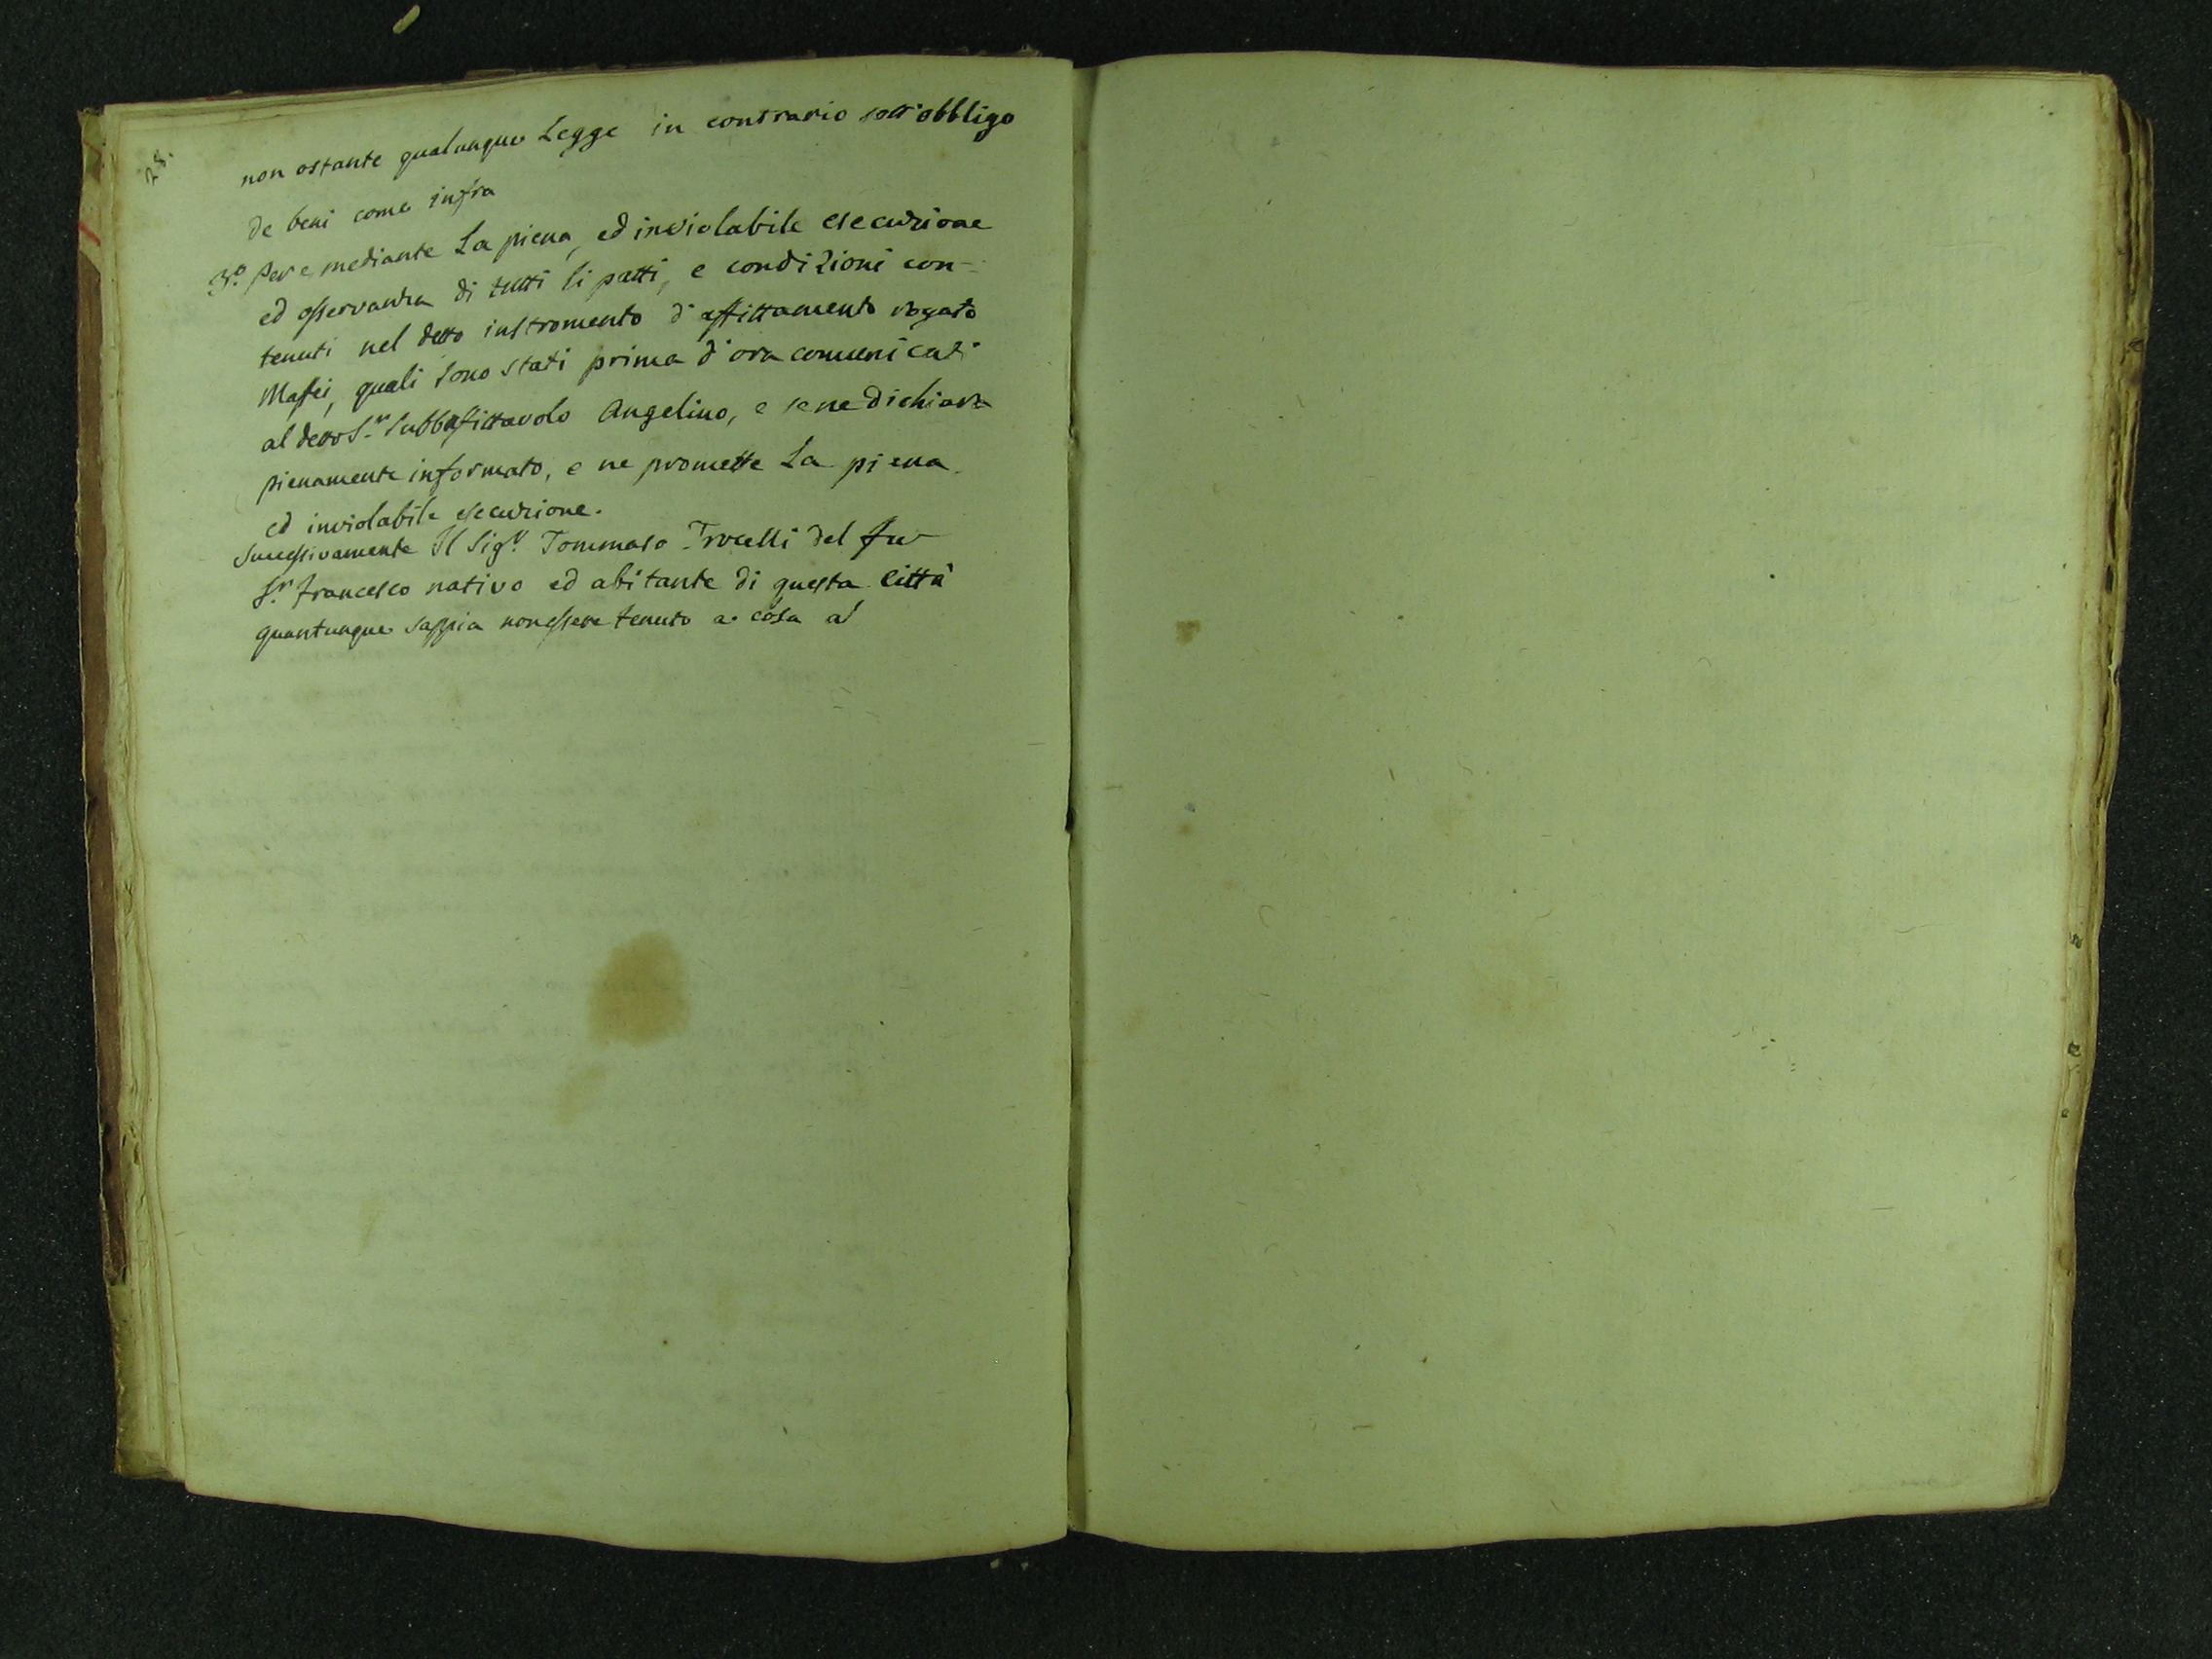 28.
non ostante qualunque Legge in contrario sott'obbligo
de beni come infra
3.º Per e mediante La piena, ed inviolabile esecuzione
ed osservanza di tutti li patti, e condizioni con-
tenuti nel detto instromento d'affittamento rogato
Massei, quali sono stati prima d'ora comunicati
al detto S.r Subbafittavolo Angelino, e se ne dichiara
pienamente informato, e ne promette La piena
ed inviolabile esecuzione.
Successivamente Il Sig.r Tommaso del fu
S.r francesco nativo ed abitante di questa Città
quantunque sappia non essere tenuto a cosa al